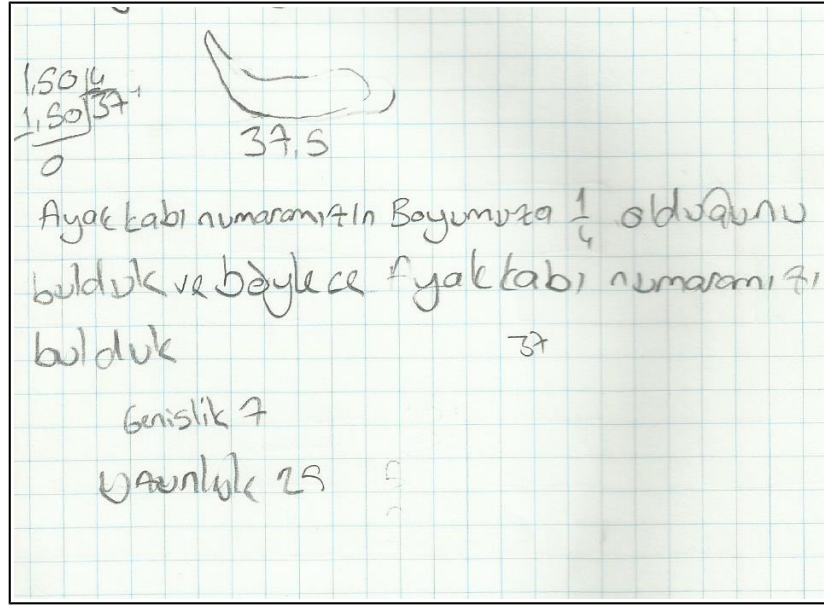 1,50 4
1,50 37
0
37,5
Ayakkabı numaramızın Boyumuza 1/4 olduğunu
bulduk ve böylece Ayakkabı numaramızı
bulduk
37
Genislik 7
Uzunluk 25